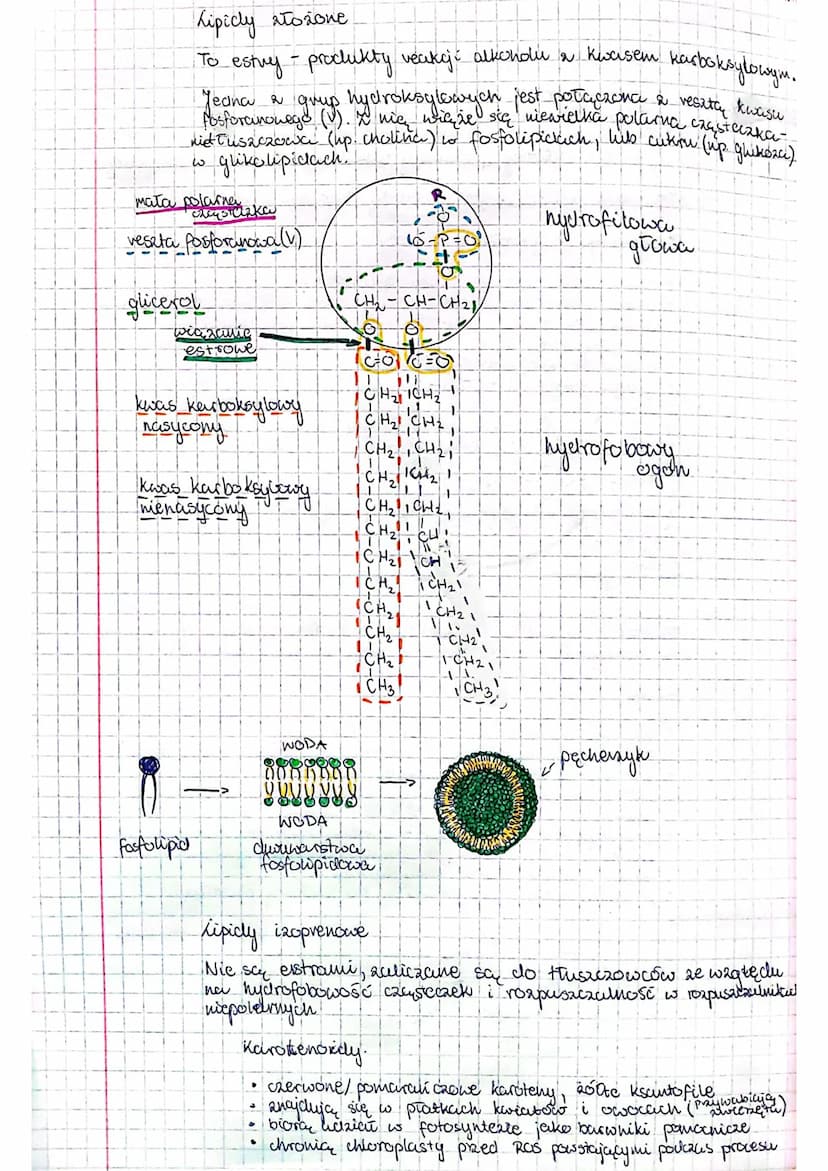 Lipidy złożone
To estry - produkty reakcji alkoholu z kwasem karboksylowym.
Jedna z grup hydroksylowych jest połączona z resztą kwasu
fosforanowego (V). Z nią wiąże się niewielka polarna cząsteczka
nietłuszczowa (np. cholina) w fosfolipidach, lub cukru (np. glukoza)
w glikolipidach.
mała polarna
cząsteczka
R
O
reszta fosforanowa (V)
O-P=O
O
hydrofilowa
głowa
glicerol
CH2 - CH-CH2
wiązanie
estrowe
O O
C=O C=O
kwas karboksylowy
nasycony
kwas karboksylowy
nienasycony
hydrofobowy
ogon
CH2 CH2
CH2 CH2
CH2 CH2
CH2 CH2
CH2 CH2
CH2 CH
CH2 CH
CH2 CH2
CH2 CH2
CH2 CH2
CH2 CH2
CH3 CH3
WODA
pęcherzyk
WODA
fosfolipid
dwuwarstwa
fosfolipidowa
Lipidy izoprenowe
Nie są estrami, zaliczane są do tłuszczowców ze względu
na hydrofobowość cząsteczek i rozpuszczalność w rozpuszczalnikach
niepolarnych
Karotenoidy.
• czerwone/pomarańczowe karoteny, żółte ksantofile
• znajdują się w płatkach kwiatów i owocach (przywabiają zwierzęta)
• biorą udział w fotosyntezie jako barwniki pomocnicze
• chronią chloroplasty przed ROS powstającymi podczas procesu